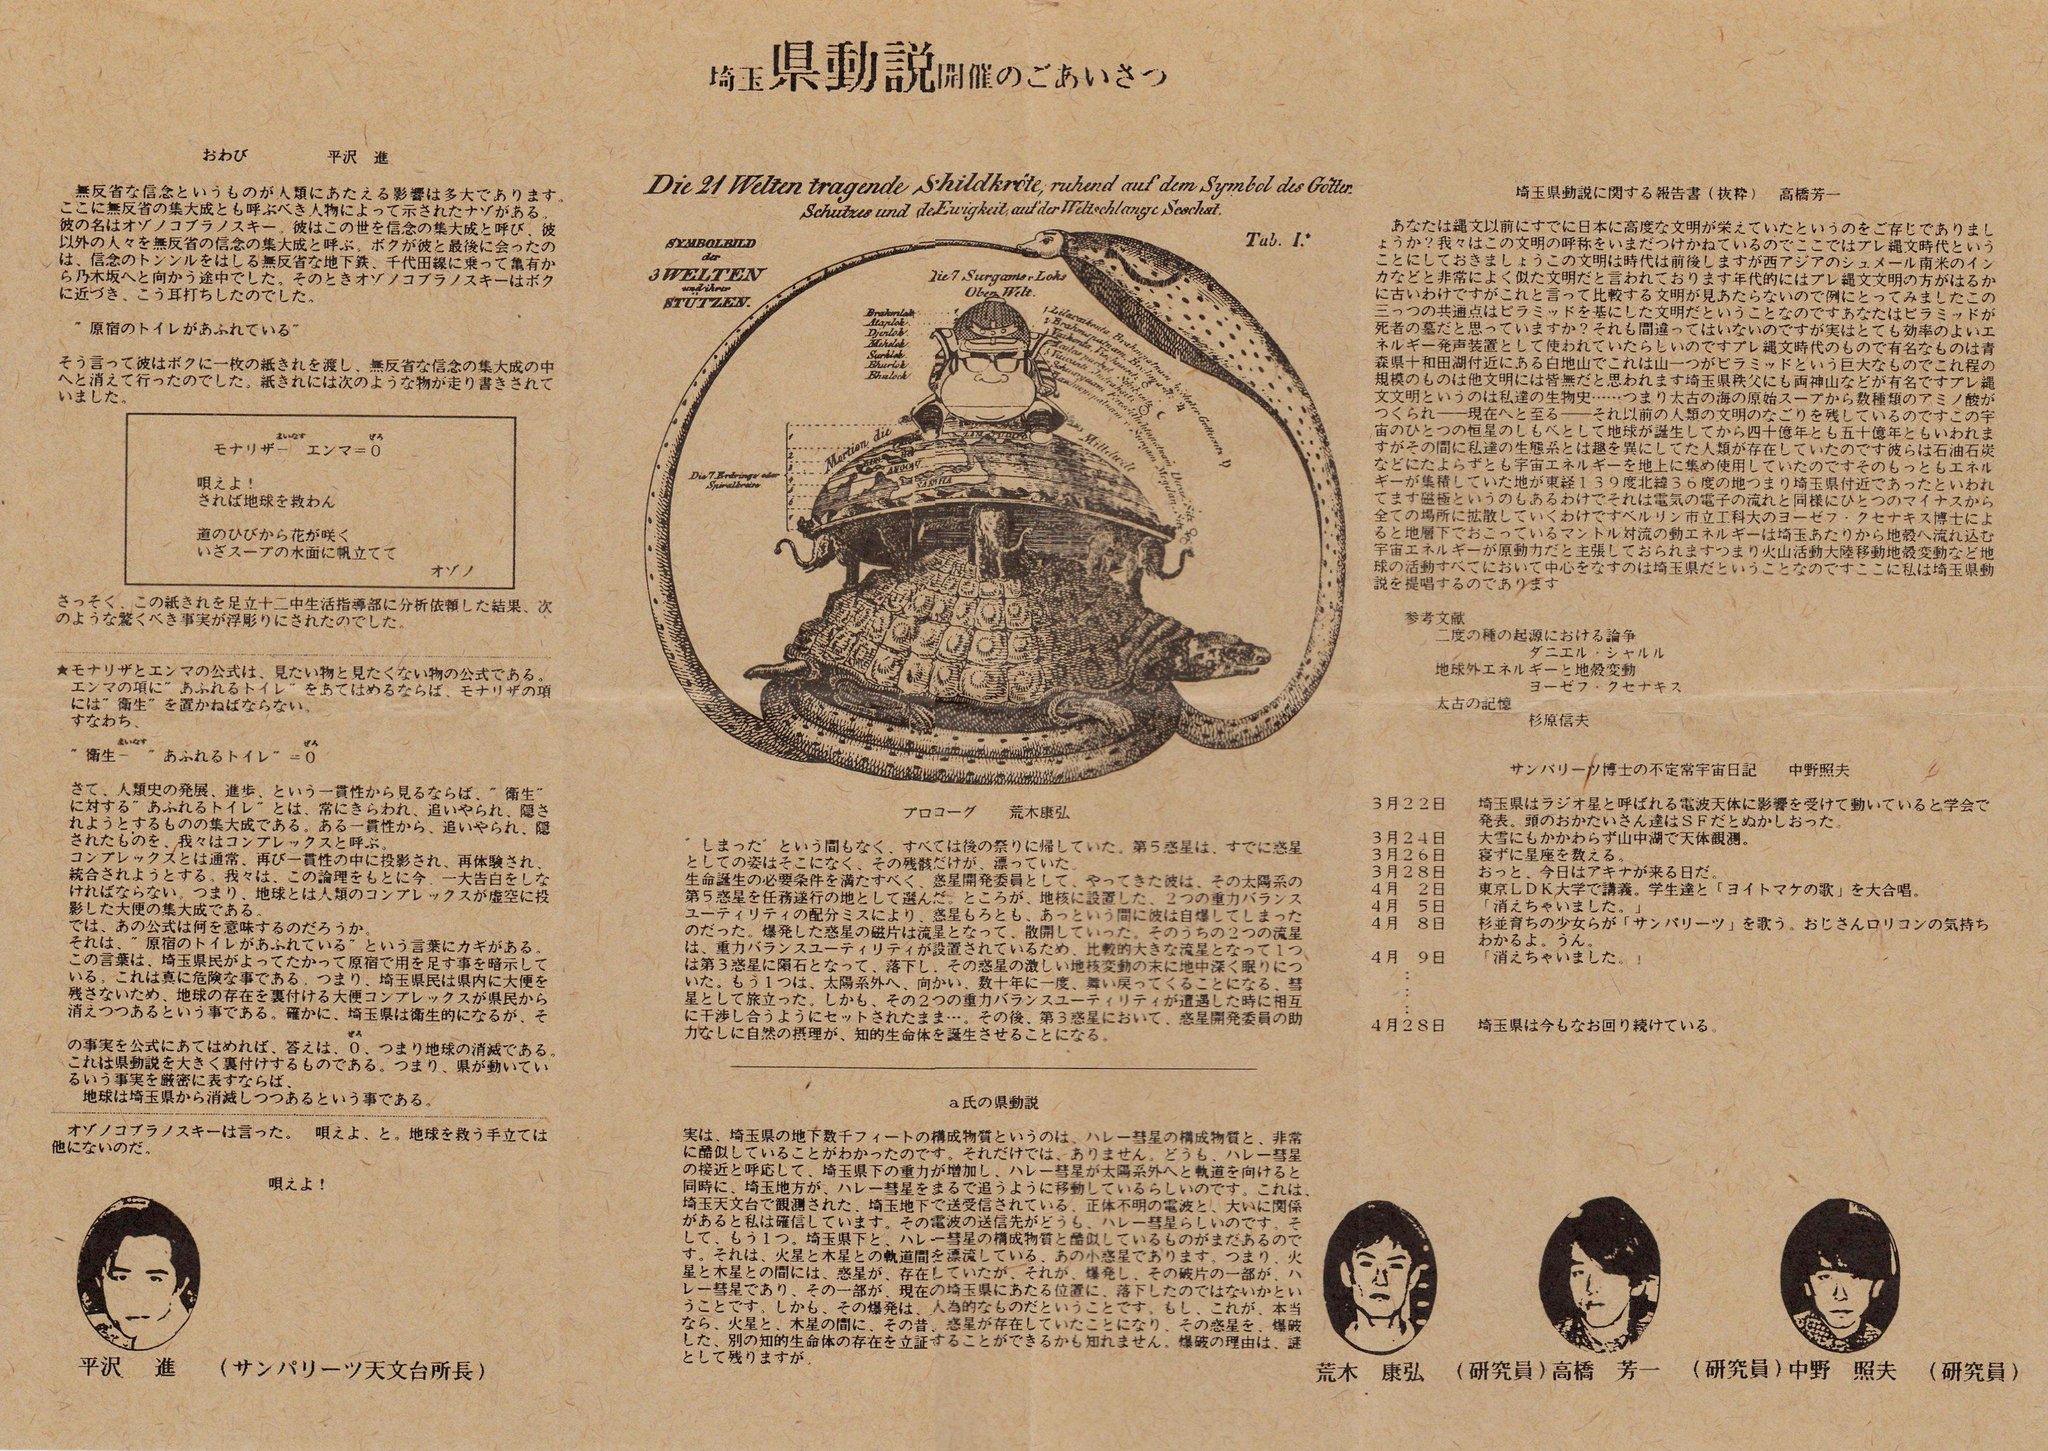 埼玉県動説開催のごあいさつ
おわび　平沢　進
無反省な信念というものが人類にあたえる影響は多大であります。
ここに無反省の集大成とも呼ぶべき人物によって示されたナゾがある。
彼の名はオゾノコブラノスキー。彼はこの世を信念の集大成と呼び、彼
以外の人々を無反省の信念の集大成と呼ぶ。ボクが彼と最後に会ったの
は、信念のトンンルをはしる無反省な地下鉄、千代田線に乗って亀有か
ら乃木坂へと向かう途中でした。そのときオゾノコブラノスキーはボク
に近づき、こう耳打ちしたのでした。
"原宿のトイレがあふれている"
そう言って彼はボクに一枚の紙きれを渡し、無反省な信念の集大成の中
へと消えて行ったのでした。紙きれには次のような物が走り書きされて
いました。
まいなす　ぜろ
モナリザー　エンマ＝0
唄えよ！
されば地球を救わん
道のひびから花が咲く
いざスープの水面に帆立てて
オゾノ
さっそく、この紙きれを足立十二中生活指導部に分析依頼した結果、次
のような驚くべき事実が浮彫りにされたのでした。
★モナリザとエンマの公式は、見たい物と見たくない物の公式である。
エンマの項に"あふれるトイレ"をあてはめるならば、モナリザの項
には"衛生"を置かねばならない。
すなわち、
まいなす　ぜろ
"衛生－　"あふれるトイレ"＝0
さて、人類史の発展、進歩、という一貫性から見るならば、"衛生"
に対する"あふれるトイレ"とは、常にきらわれ、追いやられ、隠さ
れようとするものの集大成である。ある一貫性から、追いやられ、隠
されたものを、我々はコンプレックスと呼ぶ。
コンプレックスとは通常、再び一貫性の中に投影され、再体験され、
統合されようとする。我々は、この論理をもとに今、一大告白をしな
ければならない。つまり、地球とは人類のコンプレックスが虚空に投
影した大便の集大成である。
では、あの公式は何を意味するのだろうか。
それは、"原宿のトイレがあふれている"という言葉にカギがある。
この言葉は、埼玉県民がよってたかって原宿で用を足す事を暗示して
いる。これは真に危険な事である。つまり、埼玉県民は県内に大便を
残さないため、地球の存在を裏付ける大便コンプレックスが県民から
消えつつあるという事である。確かに、埼玉県は衛生的になるが、そ
ぜろ
の事実を公式にあてはめれば、答えは、0、つまり地球の消滅である。
これは県動説を大きく裏付けするものである。つまり、県が動いてい
るいう事実を厳密に表すならば、
地球は埼玉県から消滅しつつあるという事である。
オゾノコブラノスキーは言った。　唄えよ、と。地球を救う手立ては
他にないのだ。
唄えよ！
平沢　進　（サンパリーツ天文台所長）
Die 21 Welten tragende Shildkröte, ruhend auf dem Symbol des Götter
Schutzes und deEwigkeit, auf der Weltschlange Seschat.
SYMBOLBILD
der
3 WELTEN
und ihrer
STÜTZEN.
Tab. I.
Die 7. Surgams r. Lohs
Ober Welt.
Brahmlok
Djenlok
Mehelok
Surhlok
Bhurlok
Bhulock
Die 7. Erdringe oder
Spiralkreise
Mittelwelt
アロコーグ　荒木康弘
"しまった"という間もなく、すべては後の祭りに帰していた。第5惑星は、すでに惑星
としての姿はそこになく、その残骸だけが、漂っていた。
生命誕生の必要条件を満たすべく、惑星開発委員として、やってきた彼は、その太陽系の
第5惑星を任務遂行の地として選んだ。ところが、地核に設置した、2つの重力バランス
ユーティリティの配分ミスにより、惑星もろとも、あっという間に彼は自爆してしまった
のだった。爆発した惑星の磁片は流星となって、散開していった。そのうちの2つの流星
は、重力バランスユーティリティが設置されているため、比較的大きな流星となって1つ
は第3惑星に隕石となって、落下し、その惑星の激しい地核変動の末に地中深く眠りにつ
いた。もう1つは、太陽系外へ、向かい、数十年に一度、舞い戻ってくることになる、彗
星として旅立った。しかも、その2つの重力バランスユーティリティが遭遇した時に相互
に干渉し合うようにセットされたまま…。その後、第3惑星において、惑星開発委員の助
力なしに自然の摂理が、知的生命体を誕生させることになる。
a氏の県動説
実は、埼玉県の地下数千フィートの構成物質というのは、ハレー彗星の構成物質と、非常
に酷似していることがわかったのです。それだけでは、ありません。どうも、ハレー彗星
の接近と呼応して、埼玉県下の重力が増加し、ハレー彗星が太陽系外へと軌道を向けると
同時に、埼玉地方が、ハレー彗星をまるで追うように移動しているらしいのです。これは、
埼玉天文台で観測された、埼玉地下で送受信されている、正体不明の電波と、大いに関係
があると私は確信しています。その電波の送信先がどうも、ハレー彗星らしいのです。そ
して、もう1つ。埼玉県下と、ハレー彗星の構成物質と酷似しているものがまだあるので
す。それは、火星と木星との軌道間を漂流している、あの小惑星であります。つまり、火
星と木星との間には、惑星が、存在していたが、それが、爆発し、その破片の一部が、ハ
レー彗星であり、その一部が、現在の埼玉県にあたる位置に、落下したのではないかとい
うことです。しかも、その爆発は、人為的なものだということです。もし、これが、本当
なら、火星と、木星の間に、その昔、惑星が存在していたことになり、その惑星を、爆破
した、別の知的生命体の存在を立証することができるかも知れません。爆破の理由は、謎
として残りますが。
埼玉県動説に関する報告書（抜粋）　高橋芳一
あなたは縄文以前にすでに日本に高度な文明が栄えていたというのをご存じでありまし
ょうか？我々はこの文明の呼称をいまだつけかねているのでここではプレ縄文時代という
ことにしておきましょうこの文明は時代は前後しますが西アジアのシュメール南米のイン
カなどと非常によく似た文明だと言われております年代的にはプレ縄文文明の方がはるか
に古いわけですがこれと言って比較する文明が見あたらないので例にとってみましたこの
三っつの共通点はピラミッドを基にした文明だということなのですあなたはピラミッドが
死者の墓だと思っていますか？それも間違ってはいないのですが実はとても効率のよいエ
ネルギー発声装置として使われていたらしいのですプレ縄文時代のもので有名なものは青
森県十和田湖付近にある白地山でこれは山一つがピラミッドという巨大なものでこれ程の
規模のものは他文明には皆無だと思われます埼玉県秩父にも両神山などが有名ですプレ縄
文文明というのは私達の生物史……つまり太古の海の原始スープから数種類のアミノ酸が
つくられ――現在へと至る――それ以前の人類の文明のなごりを残しているのですこの宇
宙のひとつの恒星のしもべとして地球が誕生してから四十億年とも五十億年ともいわれま
すがその間に私達の生態系とは趣を異にしてた人類が存在していたのです彼らは石油石炭
などにたよらずとも宇宙エネルギーを地上に集め使用していたのですそのもっともエネル
ギーが集積していた地が東経139度北緯36度の地つまり埼玉県付近であったといわれ
てます磁極というのもあるわけでそれは電気の電子の流れと同様にひとつのマイナスから
全ての場所に拡散していくわけですベルリン市立工科大のヨーゼフ・クセナキス博士によ
ると地層下でおこっているマントル対流の動エネルギーは埼玉あたりから地殻へ流れ込む
宇宙エネルギーが原動力だと主張しておられますつまり火山活動大陸移動地殻変動など地
球の活動すべてにおいて中心をなすのは埼玉県だということなのですここに私は埼玉県動
説を提唱するのであります
参考文献
二度の種の起源における論争
ダニエル・シャルル
地球外エネルギーと地殻変動
ヨーゼフ・クセナキス
太古の記憶
杉原信夫
サンパリーツ博士の不定常宇宙日記　中野照夫
3月22日　埼玉県はラジオ星と呼ばれる電波天体に影響を受けて動いていると学会で
発表。頭のおかたいさん達はSFだとぬかしおった。
3月24日　大雪にもかかわらず山中湖で天体観測。
3月26日　寝ずに星座を数える。
3月28日　おっと、今日はアキナが来る日だ。
4月　2日　東京LDK大学で講義。学生達と「ヨイトマケの歌」を大合唱。
4月　5日　「消えちゃいました。」
4月　8日　杉並育ちの少女らが「サンパリーツ」を歌う。おじさんロリコンの気持ち
わかるよ。うん。
4月　9日　「消えちゃいました。」
4月28日　埼玉県は今もなお回り続けている。
荒木　康弘　（研究員）高橋　芳一　（研究員）中野　照夫　（研究員）